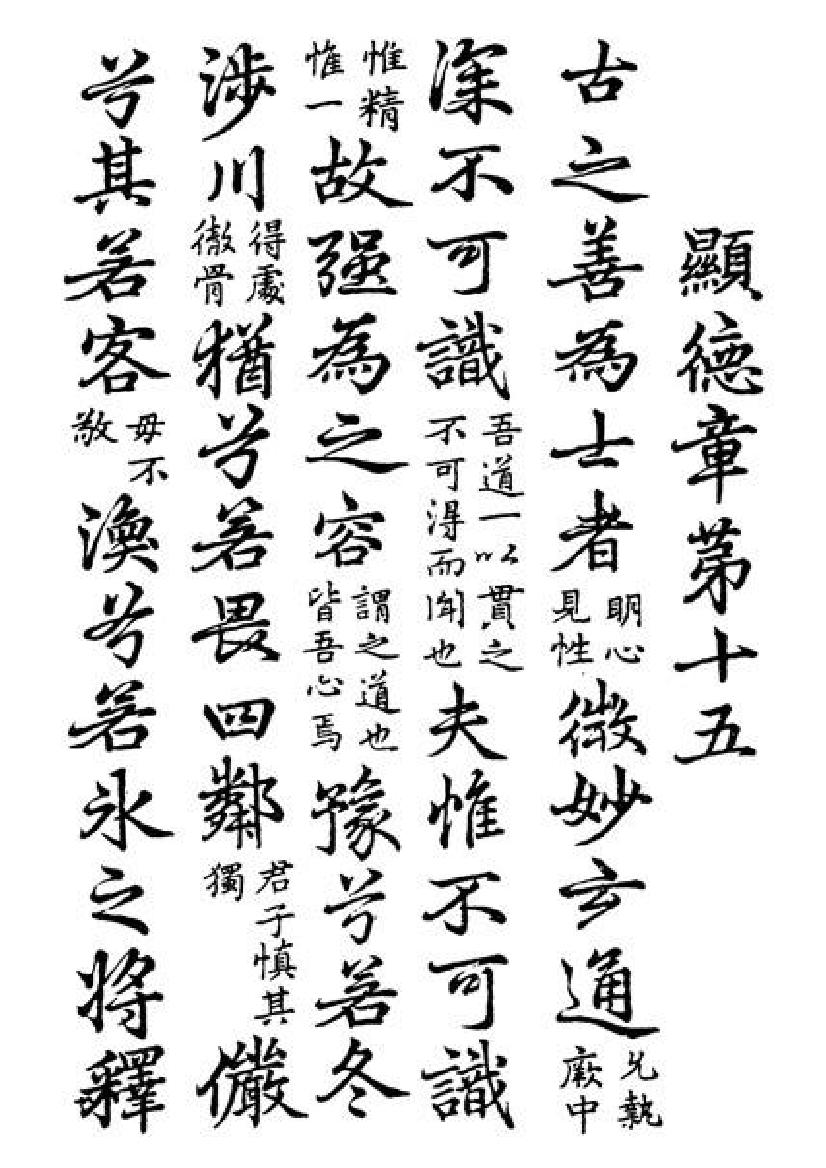 顯德章第十五
古之善為士者明心見性微妙玄通允執厥中
深不可識吾道一以貫之不可得而聞也夫惟不可識
惟精惟一故強為之容謂之道也皆吾心焉豫兮若冬
涉川得處徹骨猶兮若畏四鄰君子慎其獨儼
兮其若客毋不敬渙兮若冰之將釋